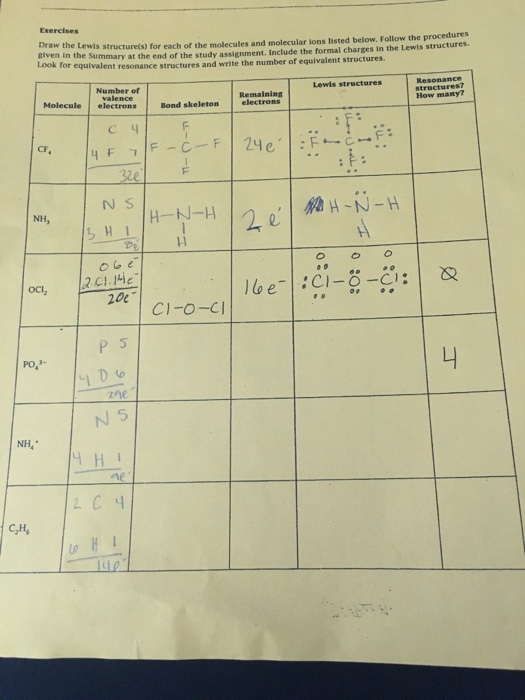 Exercises
Draw the Lewis structure(s) for each of the molecules and molecular ions listed below. Follow the procedures
given in the Summary at the end of the study assignment. Include the formal charges in the Lewis structures.
Look for equivalent resonance structures and write the number of equivalent structures.
Molecule Number of valence electrons Bond skeleton Remaining electrons Lewis structures Resonance structures? How many?
CF₄
C 4
4 F 7
32e⁻
F
F - C - F
F
24e⁻
:F:
:F - C - F:
:F:
NH₃
N 5
3 H 1
8e⁻
H-N-H
H
2e⁻
H-N-H
H
OCl₂
O 6e⁻
2.Cl.14e⁻
20e⁻
Cl-O-Cl
16e⁻
O O O
:Cl-O-Cl:
PO₄³⁻
P 5
4 O 6
29e⁻
4
NH₄⁺
N 5
4 H 1
9e⁻
C₂H₆
2 C 4
6 H 1
14e⁻